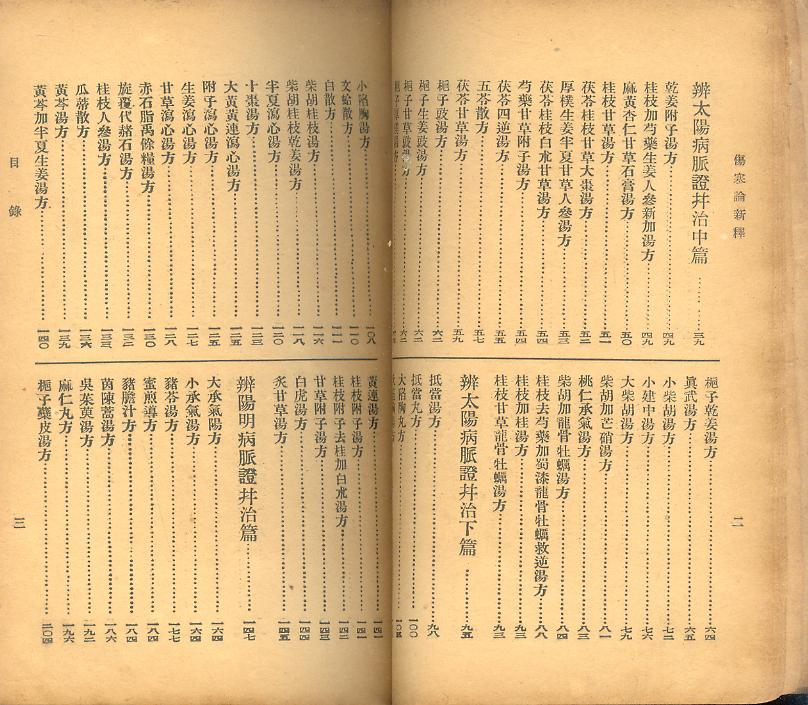 傷寒論新釋
辨太陽病脈證幷治中篇 三九
乾姜附子湯方 四九
桂枝加芍藥生姜人參新加湯方 四九
麻黃杏仁甘草石膏湯方 五〇
桂枝甘草湯方 五一
茯苓桂枝甘草大棗湯方 五二
厚樸生姜半夏甘草人參湯方 五三
茯苓桂枝白朮甘草湯方 五四
芍藥甘草附子湯方 五四
茯苓四逆湯方 五五
五苓散方 五七
茯苓甘草湯方 五九
梔子豉湯方 六一
梔子生姜豉湯方 六二
梔子甘草豉湯方 六二
梔子乾姜湯方 六四
眞武湯方 六五
小柴胡湯方 七二
小建中湯方 七六
大柴胡湯方 七九
柴胡加芒硝湯方 八一
桃仁承氣湯方 八三
柴胡加龍骨牡蠣湯方 八四
桂枝去芍藥加蜀漆龍骨牡蠣救逆湯方 八八
桂枝加桂湯方 九三
桂枝甘草龍骨牡蠣湯方 九三
辨太陽病脈證幷治下篇 九五
抵當湯方 九八
抵當丸方 一〇〇
大陷胸丸方 一〇五
二
小陷胸湯方 一〇八
文蛤散方 一一〇
白散方 一一一
柴胡桂枝湯方 一一六
柴胡桂枝乾姜湯方 一一八
半夏瀉心湯方 一二〇
十棗湯方 一二三
大黃黃連瀉心湯方 一二五
附子瀉心湯方 一二五
生姜瀉心湯方 一二七
甘草瀉心湯方 一二八
赤石脂禹餘糧湯方 一三〇
旋覆代赭石湯方 一三二
桂枝人參湯方 一三三
瓜蒂散方 一三六
黃芩湯方 一三九
黃芩加半夏生姜湯方 一四〇
黃連湯方 一四一
桂枝附子湯方 一四一
桂枝附子去桂加白朮湯方 一四二
甘草附子湯方 一四三
白虎湯方 一四四
炙甘草湯方 一四五
辨陽明病脈證幷治篇 一四七
大承氣陽方 一六四
小承氣湯方 一六四
豬苓湯方 一七七
蜜煎導方 一八四
豬膽汁方 一八四
茵陳蒿湯方 一八六
吳茱萸湯方 一九二
麻仁丸方 一九六
梔子蘗皮湯方 二〇四
目錄
三